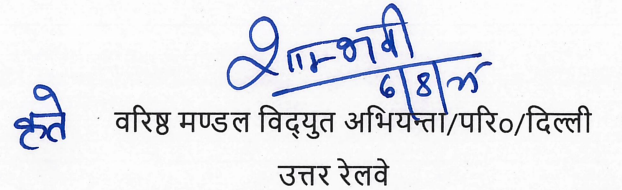 शाम्भवी
6/8/25
कृते वरिष्ठ मण्डल विद्युत अभियन्ता/परि०/दिल्ली
उत्तर रेलवे